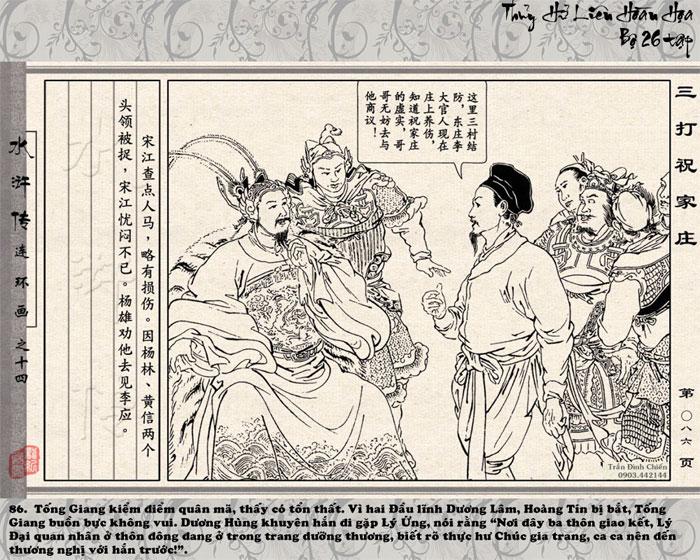 Thủy Hử Liên Hoàn Họa
Bộ 26 tập
三打祝家庄
第〇八六页
这里三村结
防，东庄李
大官人现在
庄上养伤，
知道祝家庄
的虚实，哥
哥无妨去与
他商议！
宋江查点人马，略有损伤。因杨林、黄信两个
头领被捉，宋江忧闷不已。杨雄劝他去见李应。
水浒传连环画之十四
Trần Đình Chiến
0903.442144
86. Tống Giang kiểm điểm quân mã, thấy có tổn thất. Vì hai Đầu lĩnh Dương Lâm, Hoàng Tín bị bắt, Tống
Giang buồn bực không vui. Dương Hùng khuyên hắn đi gặp Lý Ứng, nói rằng “Nơi đây ba thôn giao kết, Lý
Đại quan nhân ở thôn đông đang ở trong trang dưỡng thương, biết rõ thực hư Chúc gia trang, ca ca nên đến
thương nghị với hắn trước!”.